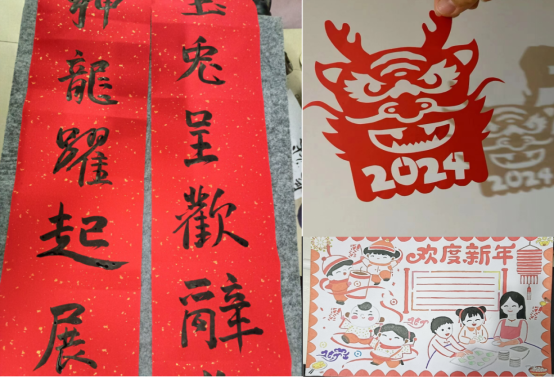 玉兔呈歡辭
神龍躍起展
2024
2024
欢度新年